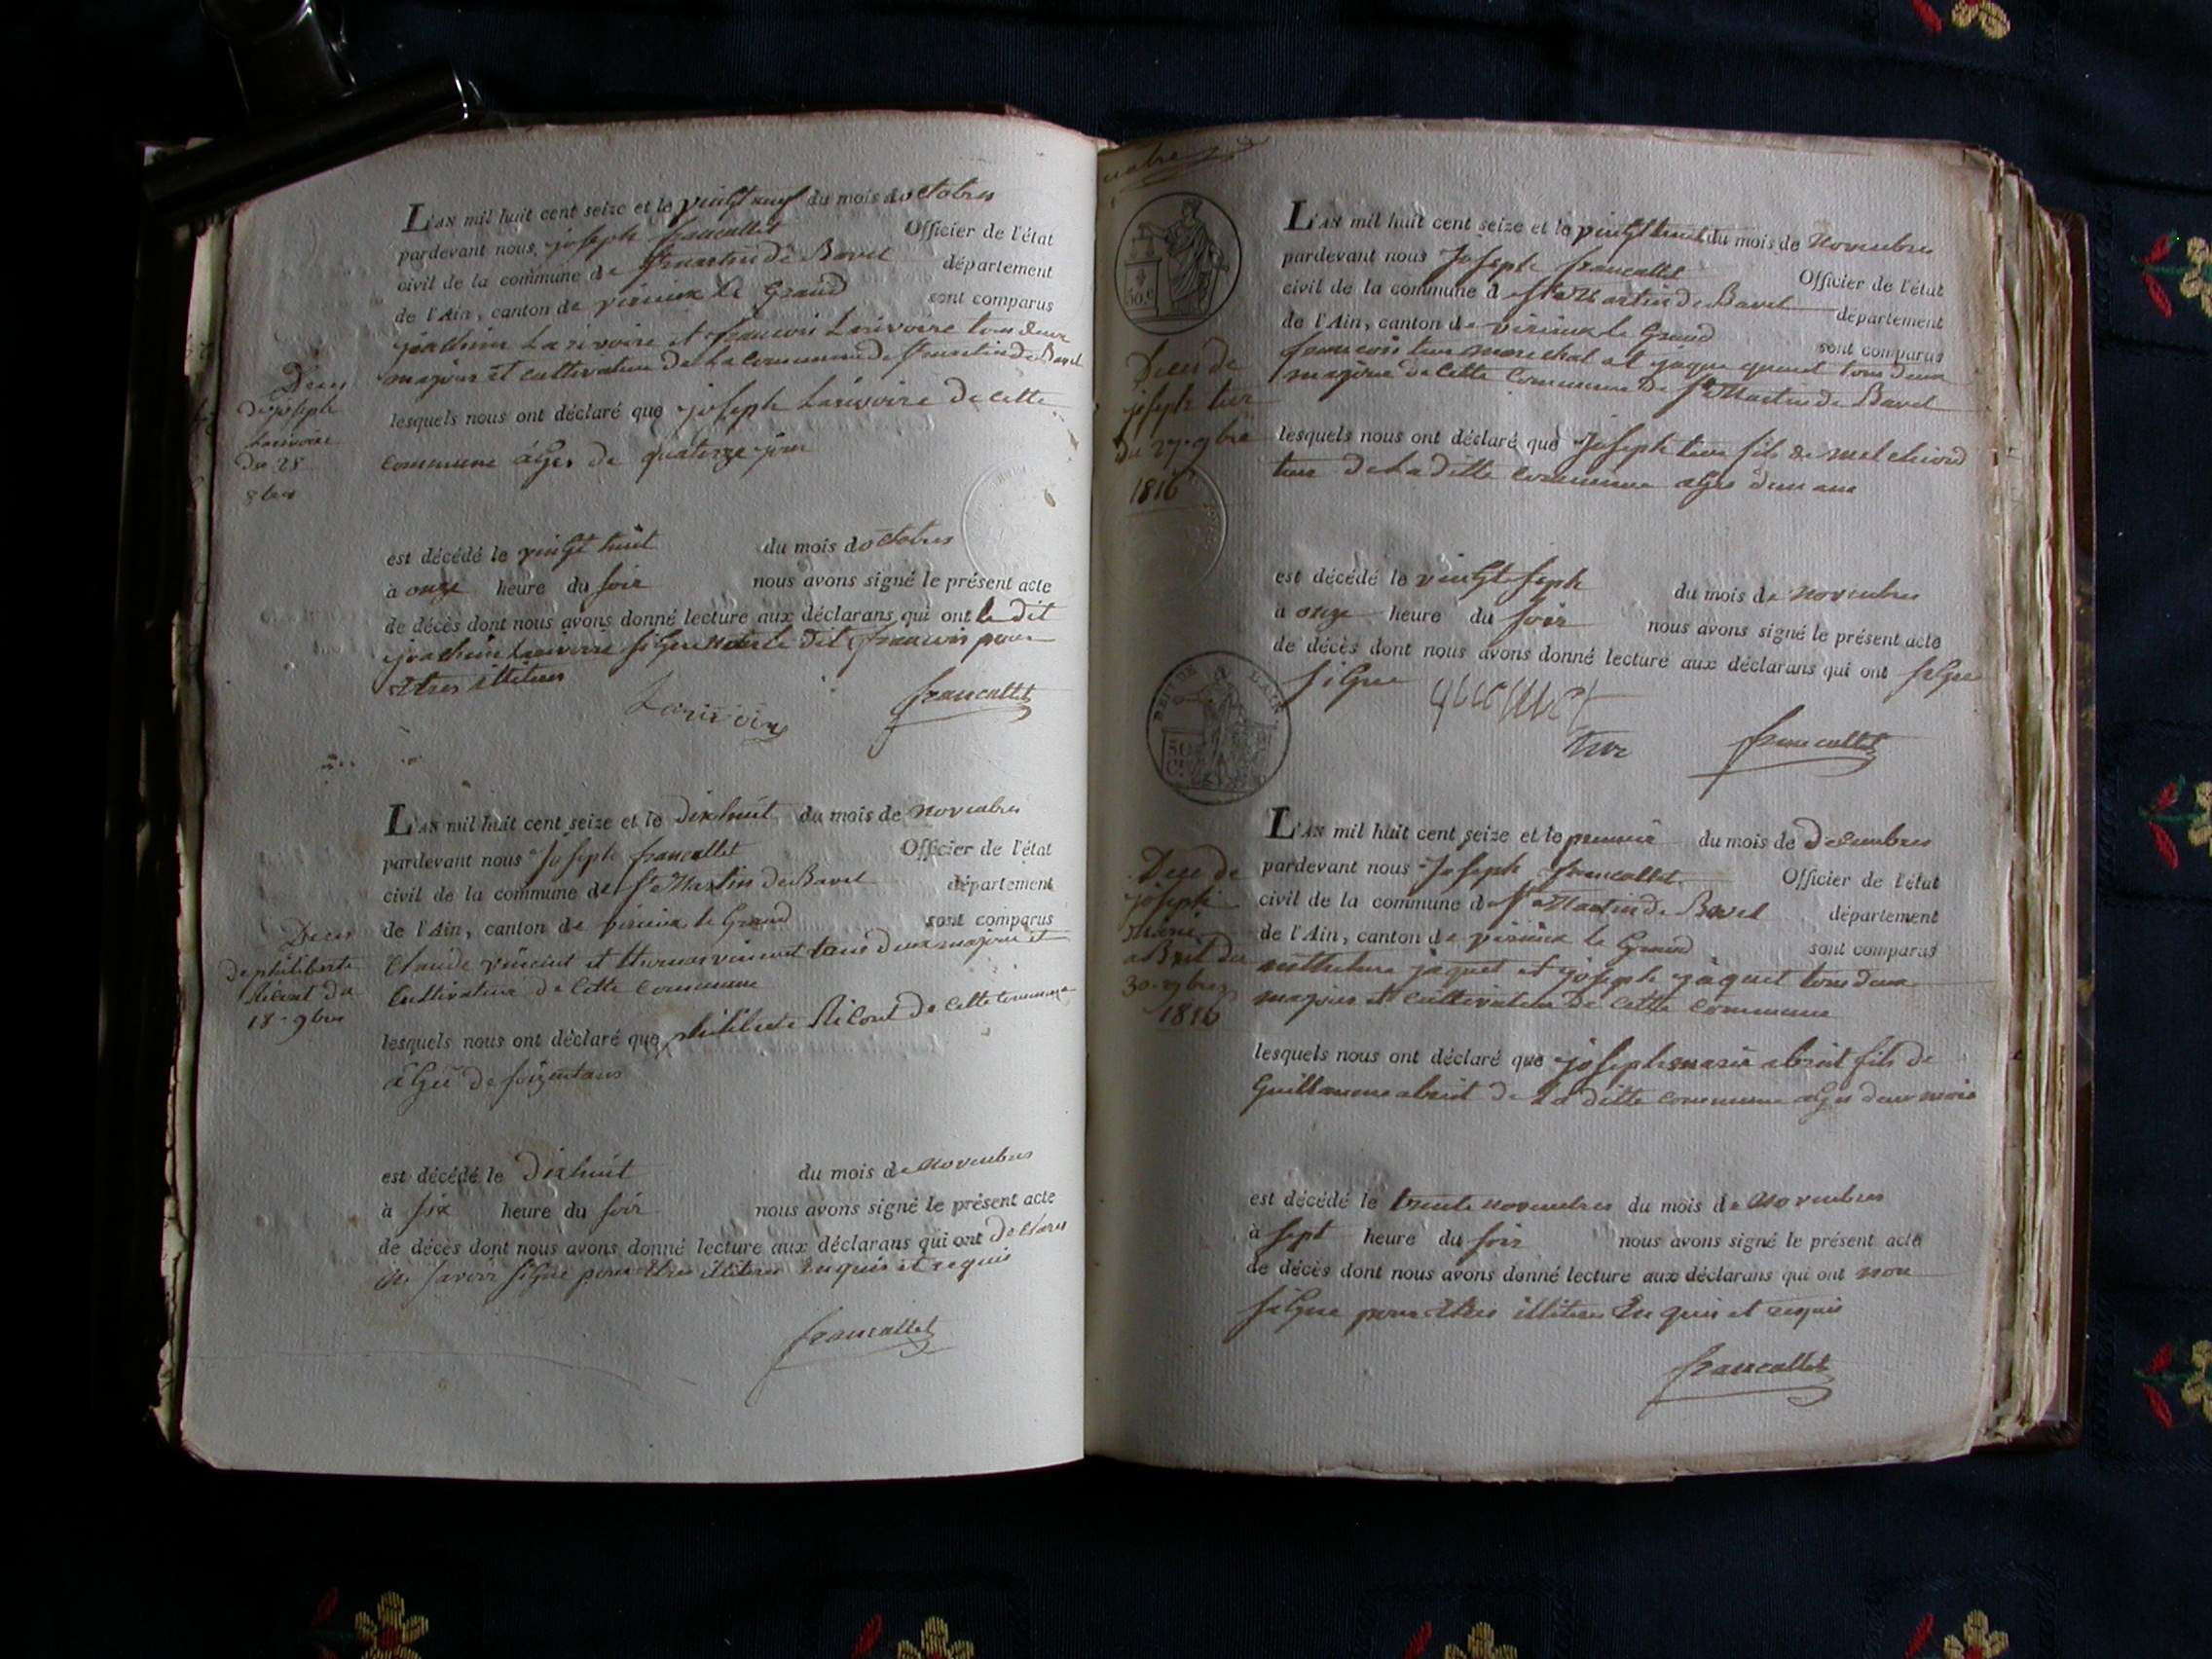 L'AN mil huit cent seize et le vingt neuf du mois doctobres
pardevant nous, joseph francallet Officier de l'état
civil de la commune de st martin de Bavel département
de l'Ain, canton de virieux le Grand sont comparus
joachim Larivoire et francois Larivoire tous deux
majeurs et cultivateur de La commune de st martin de Bavel
Deces
de joseph
Larivoire
Du 28
8bre
lesquels nous ont déclaré que joseph Larivoire de cette
commune âgés de quatorze jour
est décédé le vingt huit du mois doctobres
à onze heure du soir nous avons signé le présent acte
de décès dont nous avons donné lecture aux déclarans qui ont le dit
joachim Larivoire signé le dit francois pour
Etres illitere
Larivoire francallet
L'AN mil huit cent seize et le dix huit du mois de novembres
pardevant nous Joseph francallet Officier de l'état
civil de la commune de st Martin de Bavel département
de l'Ain, canton de virieux le Grand sont comparus
Claude vincent et thomas vincent tous deux majeur et
Cultivateur de Cette Commune
Deces
de philiberte
Récout du
18-9bre
lesquels nous ont déclaré que philiberte Récout de cette commune
âgée de soizentans
est décédé le dix huit du mois de novembres
à six heure du soir nous avons signé le présent acte
de décès dont nous avons donné lecture aux déclarans qui ont declares
ne savoir signe pour Etres illiteres Enquis et requis
francallet
L'AN mil huit cent seize et le vingt huit du mois de Novembres
pardevant nous Joseph francallet Officier de l'état
civil de la commune d st Martin de Bavel département
de l'Ain, canton de virieux le Grand sont comparus
francois tur marechal et jaque tous deux
majeur de Cette Commune De st Martin de Bavel
50.c
Deces de
joseph tur
Du 27-9bre
1816
lesquels nous ont déclaré que Joseph tur fils de melchiord
tur de La ditte commune agés dun ans
est décédé le vingt seph du mois de novembres
à onze heure du soir nous avons signé le présent acte
de décès dont nous avons donné lecture aux déclarans qui ont signe
signe
tur francallet
50
C.
L'AN mil huit cent seize et le premier du mois de decembres
pardevant nous Joseph francallet Officier de l'état
civil de la commune d st Martin de Bavel département
de l'Ain, canton de virieux le Grand sont comparus
anthelme jaquet et joseph jaquet tous deux
majeur et cultivateur de cette commune
Dece de
joseph
marie
abret du
30-9bres
1816
lesquels nous ont déclaré que joseph marie abret fils de
Guillaume abret de La ditte commune agés deux mois
est décédé le trente novembres du mois de Novembres
à sept heure du soir nous avons signé le présent acte
de décès dont nous avons donné lecture aux déclarans qui ont non
signe pour Etres illiteres Enquis et requis
francallet